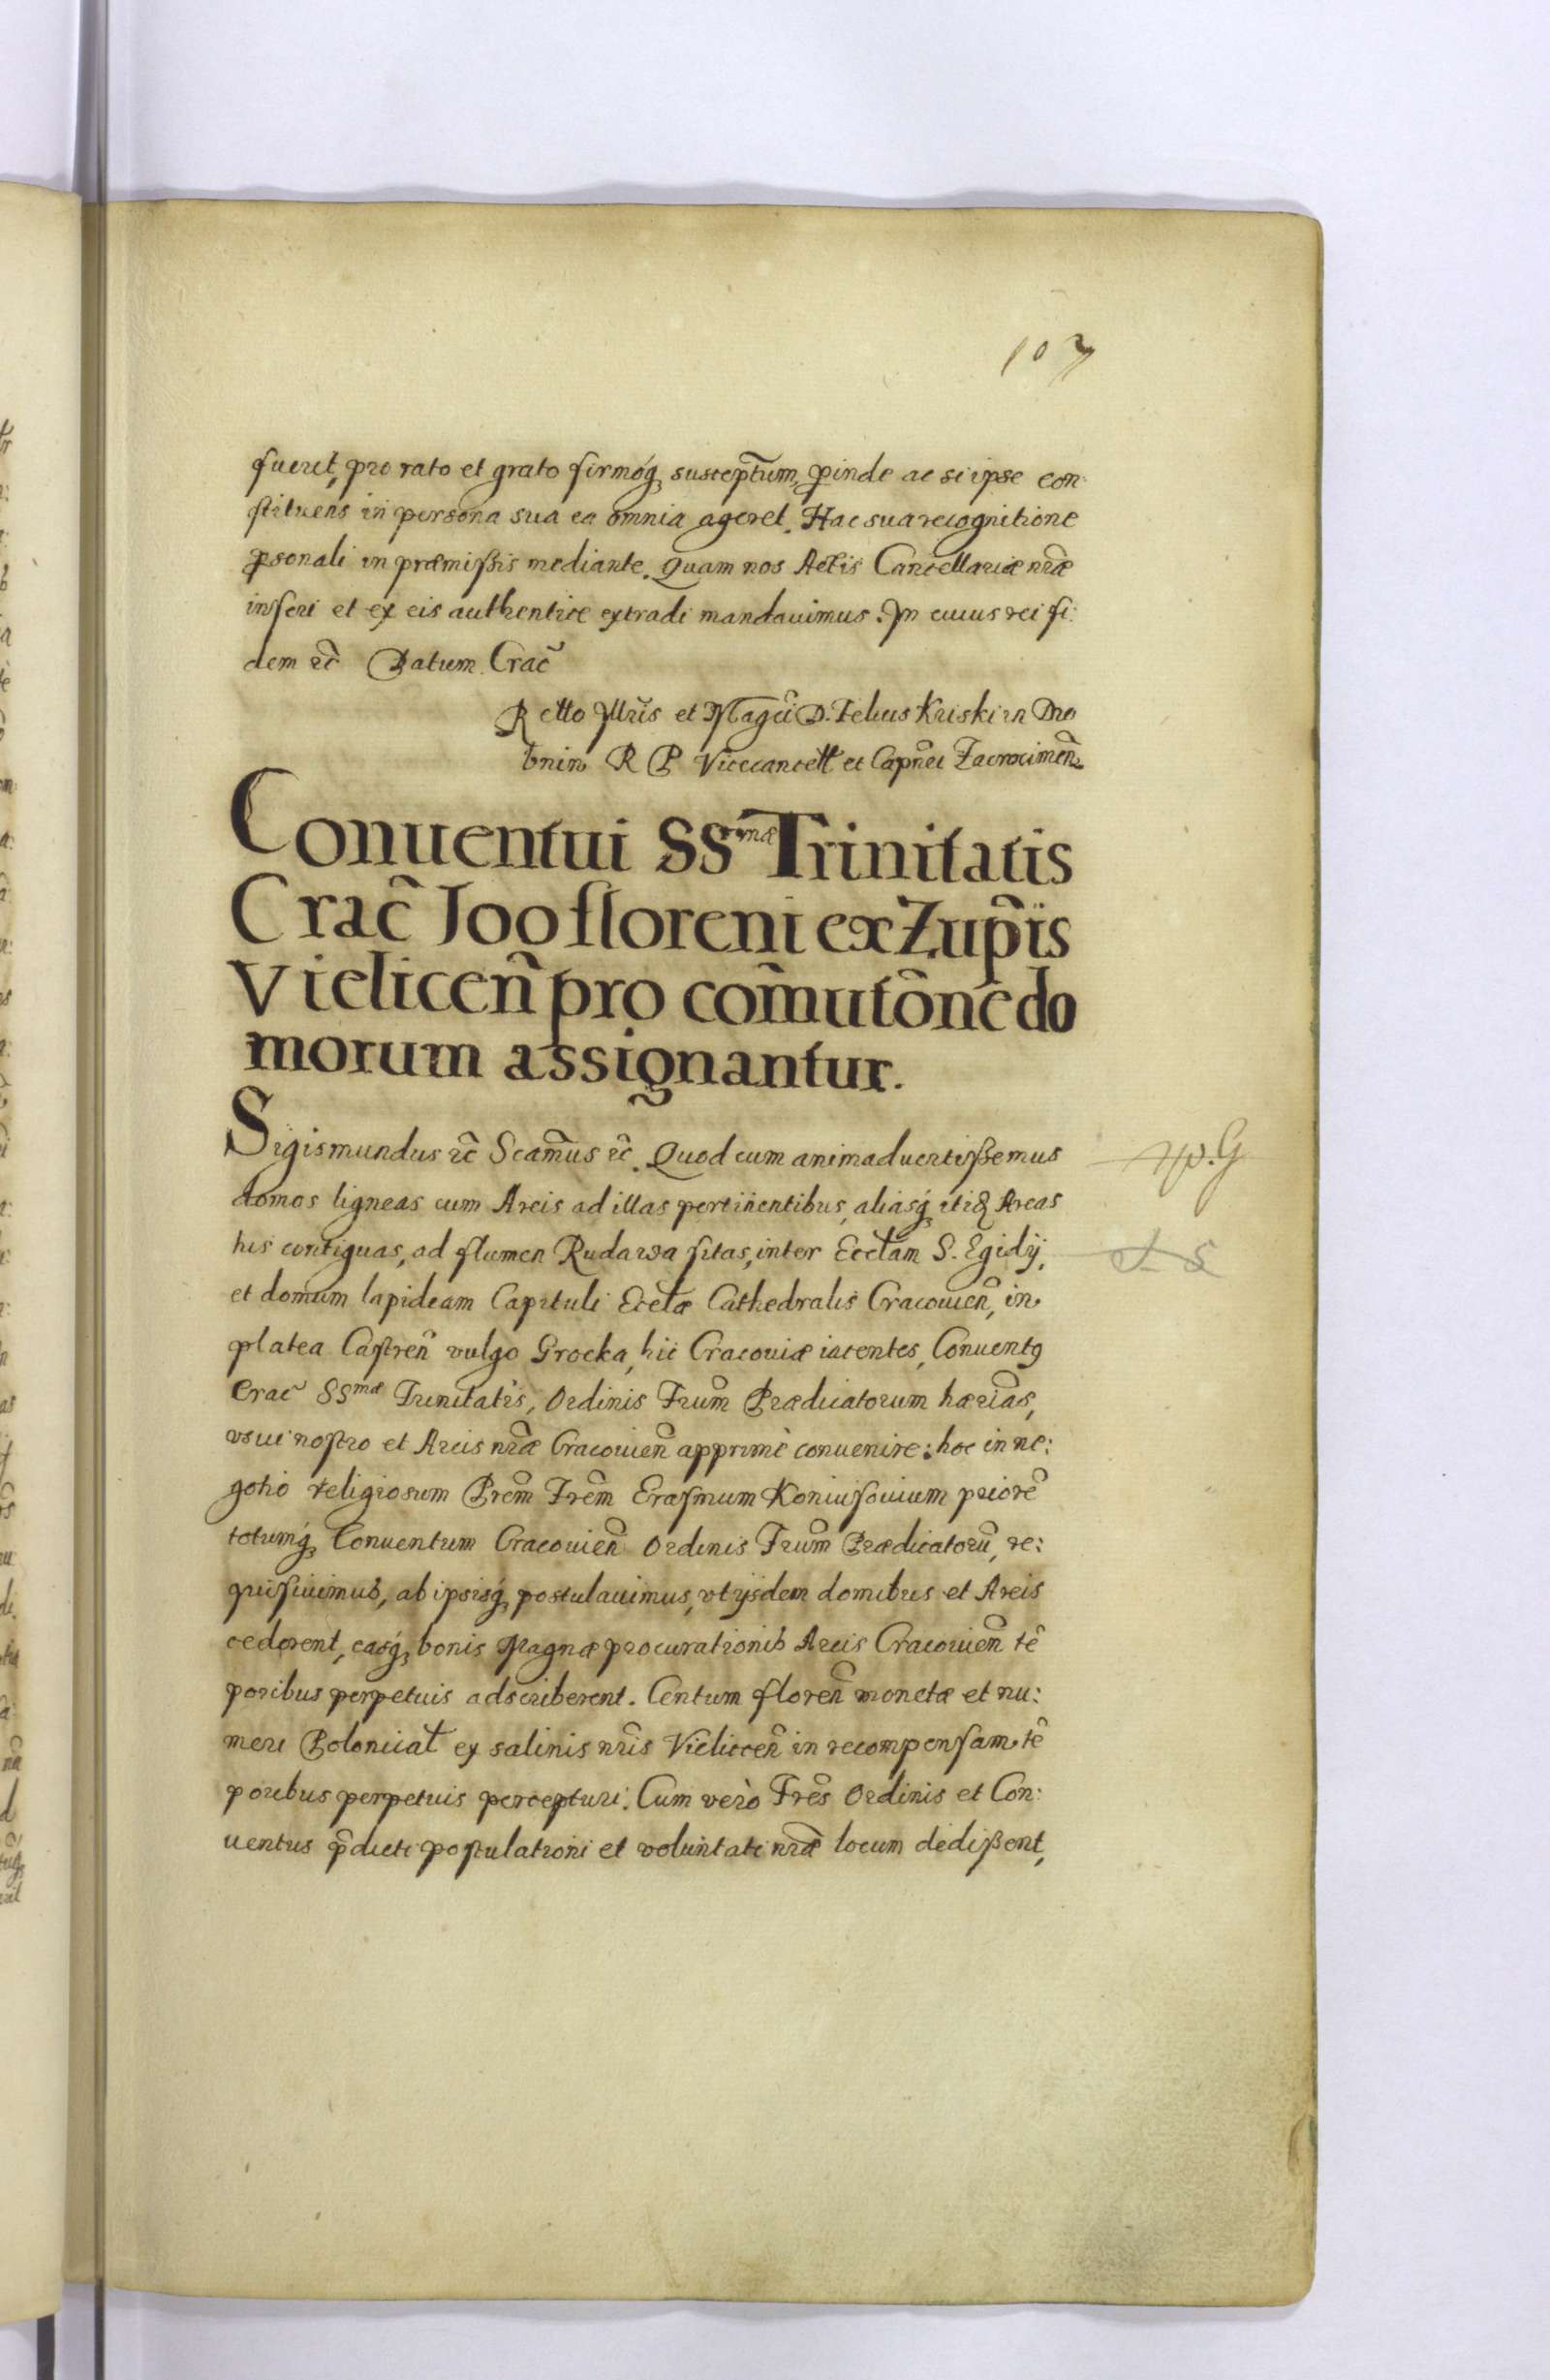 107
fueret, pro rato et grato firmoq; susceptũm, ꝑinde ac si ipse con
stituens in persona sua ea omnia ageret. Hac sua recognitione
ꝑsonali in præmißis mediante. Quam nos Actis Cancellariæ nr̃æ
inseri et ex eis authentice extradi mandauimus. In cuius rei fi:
dem ec̃ Datum Crac̃
R ctto Jllr̃is et Magci D. Felicis Kriski in Dro
bnin R P Vicecancell et Capñei Zacrocimeñ.
Conuentui SSmæ Trinitatis
Crac̃ Joo floreni ex Zup̃is
Vieliceñ pro com̃utõne do
morum assignantur.
Sigismundus ec̃ Scam̃us ec̃. Quod cum animaduertißemus
domos ligneas cum Areis ad illas pertinentibus, aliasq́; itiđ Areas
his contiguas, ad flumen Rudawa sitas, inter Eccl̃am S. Egidij,
et domum lapideam Capituli Eccl̃æ Cathedralis Cracouieñ, in
platea Castreñ vulgo Grocka, hic Cracouiæ iacentes, Conventꝰ
Crac̃ SSmæ Trinitatis, Ordinis Frum̃ Prædicatorum hæriãs,
vsui nostro et Arcis nr̃æ Cracouieñ apprimè conuenire: hoc in ne:
gotio religiosum Prem̃ Frem̃ Erasmum Koniusouium priorẽ
totumq́; Conuentum Cracouieñ Ordinis Frum̃ Prædicatorũ, re:
quisiuimus, ab ipsisq́; postulauimus, vt ijsdem domibus et Areis
cederent, easq́; bonis Magnæ procurationis Arcis Cracouieñ tẽ
poribus perpetuis adscriberent. Centum floreñ monetæ et nu:
meri Polonicał ex salinis nr̃is Vielicceñ in recompensam tẽ
poribus perpetuis percepturi. Cum verò Frẽs Ordinis et Con:
uentus p̃dicti postulationi et voluntati nr̃æ locum dedißent,
S